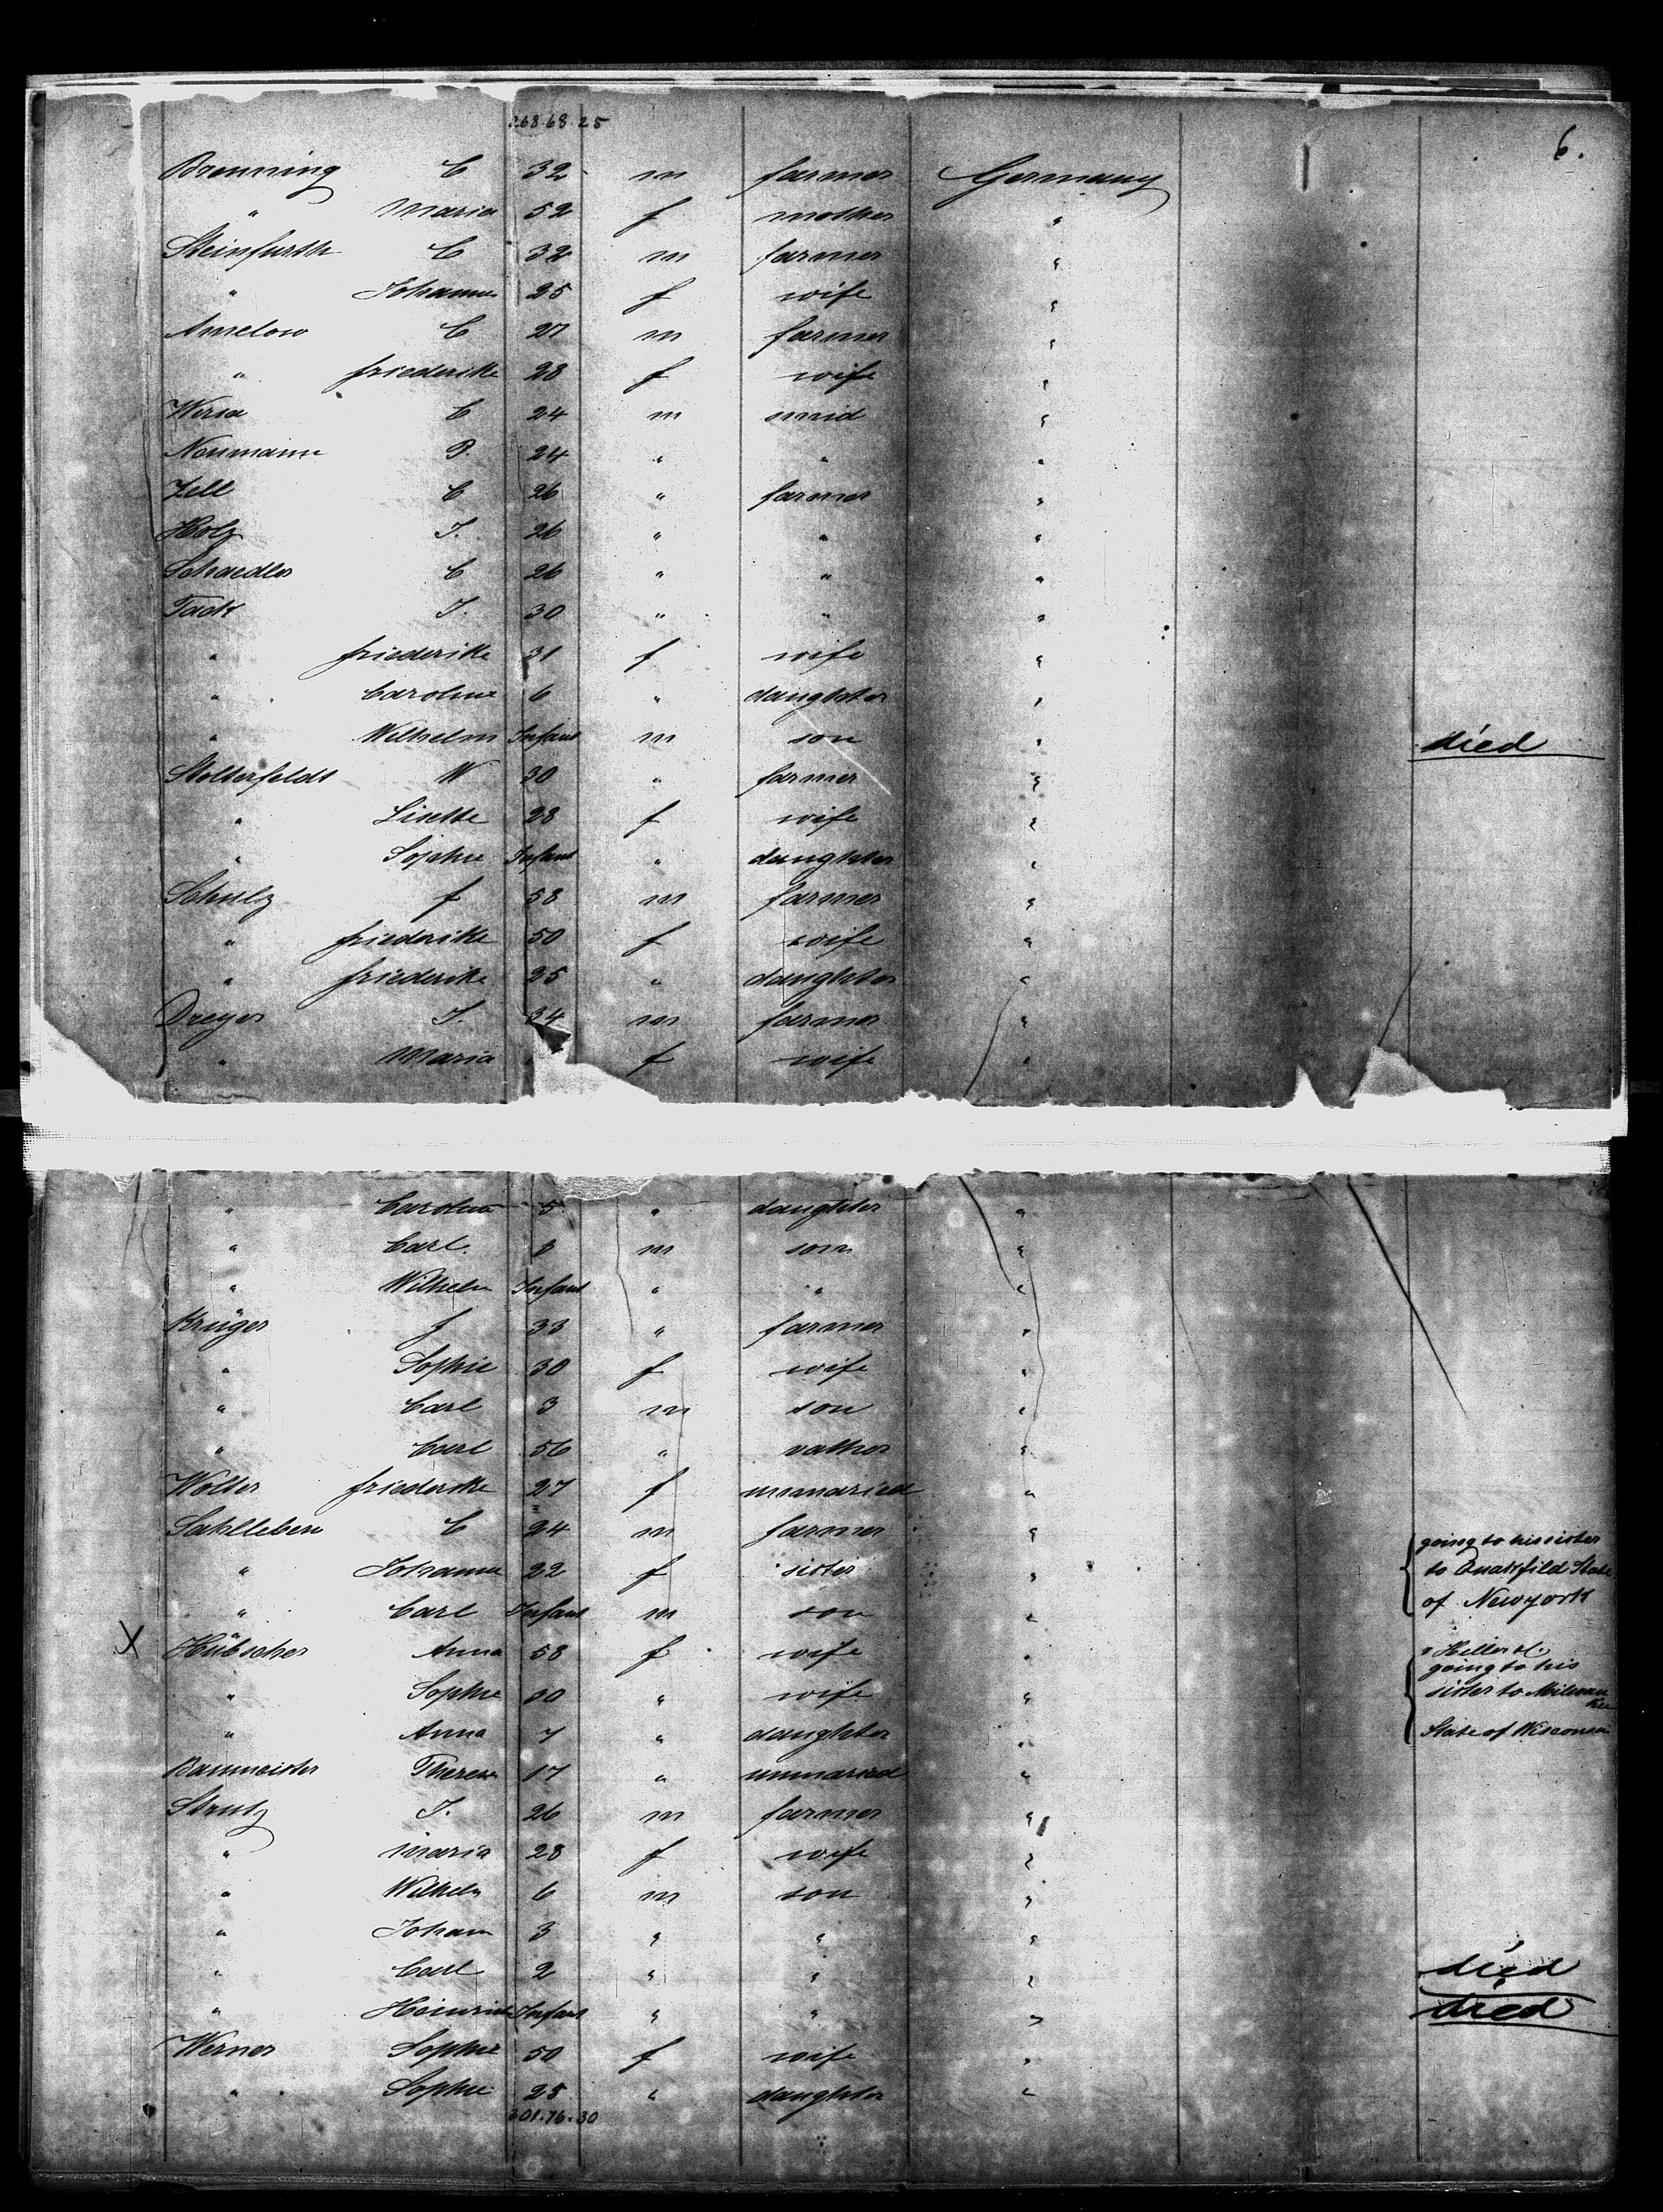 268.68.25
6.
Brenning C 32 m farmer Germany
" Maria 52 f mother "
Steinfurth C 32 m farmer "
" Johanna 25 f wife "
Amelow C 27 m farmer "
" friederike 28 f wife "
C 24 m smid "
Neumann P. 24 " " "
Zell C 26 " farmer "
Holz J. 26 " " "
Schaedler C 26 " " "
Tack J. 30 " " "
" friederike 31 f wife "
" Caroline 6 " daughter "
" Wilhelm Infant m son " died
Stolterfeldt W 30 " farmer "
" Lisette 28 f wife "
" Sophie Infant " daughter "
Schulz f 58 m farmer "
" friederike 50 f wife "
" friederike 25 " daughter "
Dreyer J. 34 m farmer "
" Maria f wife "
" Caroline 5 " daughter "
" Carl m son "
" Wilhelm Infant " " "
Krüger f 33 " farmer "
" Sophie 30 f wife "
" Carl 3 m son "
" Carl 56 " vather "
Wolter friederike 27 f unmaried "
Sahlleben C 24 m farmer " going to his sister
" Johanna 22 f sister " to State
" Carl Infant m son " of Newyork
X Hübscher Anna 58 f wife "
going to his
" Sophie 30 " wife " sister to Milwaukee
" Anna 7 " daughter " State of Wisconsin
Baumeister Therese 17 " unmaried "
Strutz J. 26 m farmer "
" Maria 28 f wife "
" Wilhelm 6 m son "
" Johann 3 " " "
" Carl 2 " " " died
" Heinrich Infant " " " died
Werner Sophie 50 f wife "
" Sophie 25 " daughter "
301.76.30